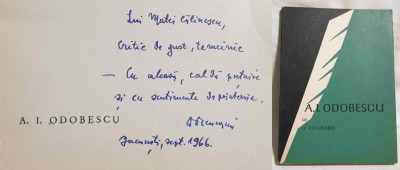 Lui Matei Călinescu,
Critic de gust, temeinic
— Cu aleasă, caldă prețuire
și cu sentimente de prietenie,
București, sept. 1966.
A. I. ODOBESCU
A.I. ODOBESCU
DE
D. PĂCURARIU